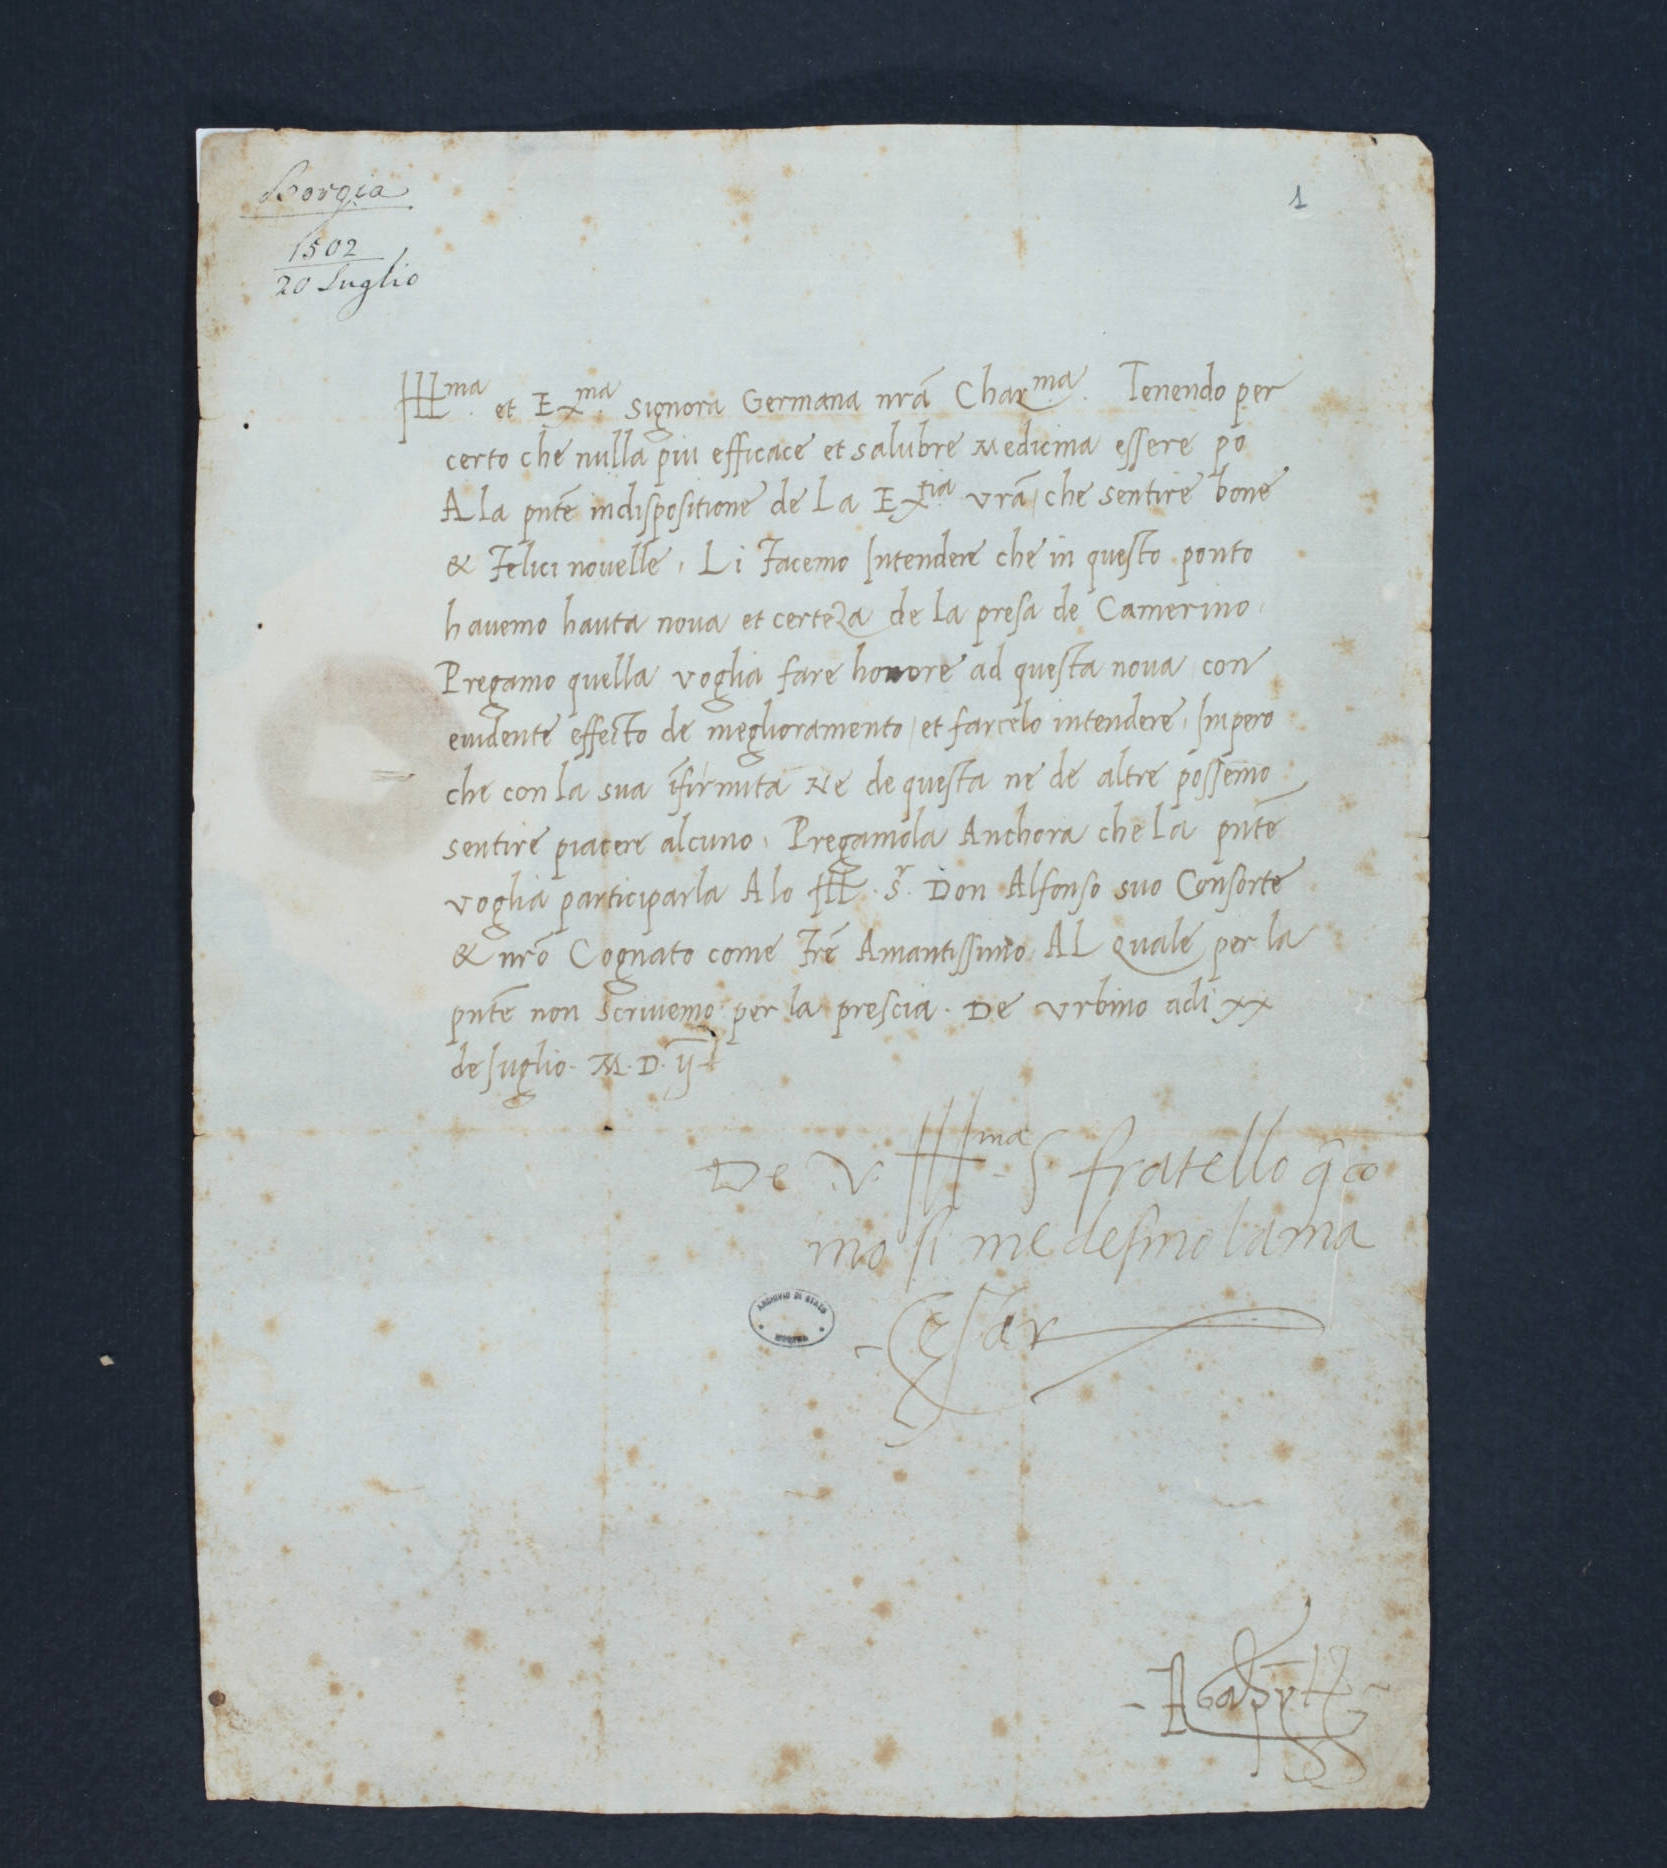 Borgia
1502
20 Luglio
1
Ill.ma et Ex.ma Signora Germana nrā Char.ma Tenendo per
certo che nulla piu efficace et salubre Medicina essere po
A la pntē indispositione de La Ex.tia vrā / che sentire bone
& Felici novelle, Li Facemo Intendere che in questo ponto
havemo hauta nova et certeza de la presa de Camerino.
Pregamo quella voglia fare honore ad questa nova con
evidente effecto de meglioramento / et farcelo intendere, Impero
che con la sua īfirmita Ne de questa ne de altre possemo
sentire piacere alcuno, Pregamola Anchora che La pntē
voglia participarla A lo Ill. S.r Don Alfonso suo Consorte
& nrō Cognato come Frē Amantissimo, AL quale per la
pntē non scrivemo per la prescia. De Urbino adi xx
de Iuglio. M. D. ij
De V. Ill.ma S fratello q̄ co
mo si medesmo lama
Cesar
ARCHIVIO DI STATO
MODENA